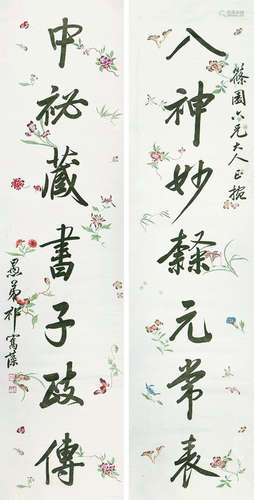 篠園六兄大人正腕
八神妙隸元常表
中祕藏書子政傳
愚弟祁寯藻